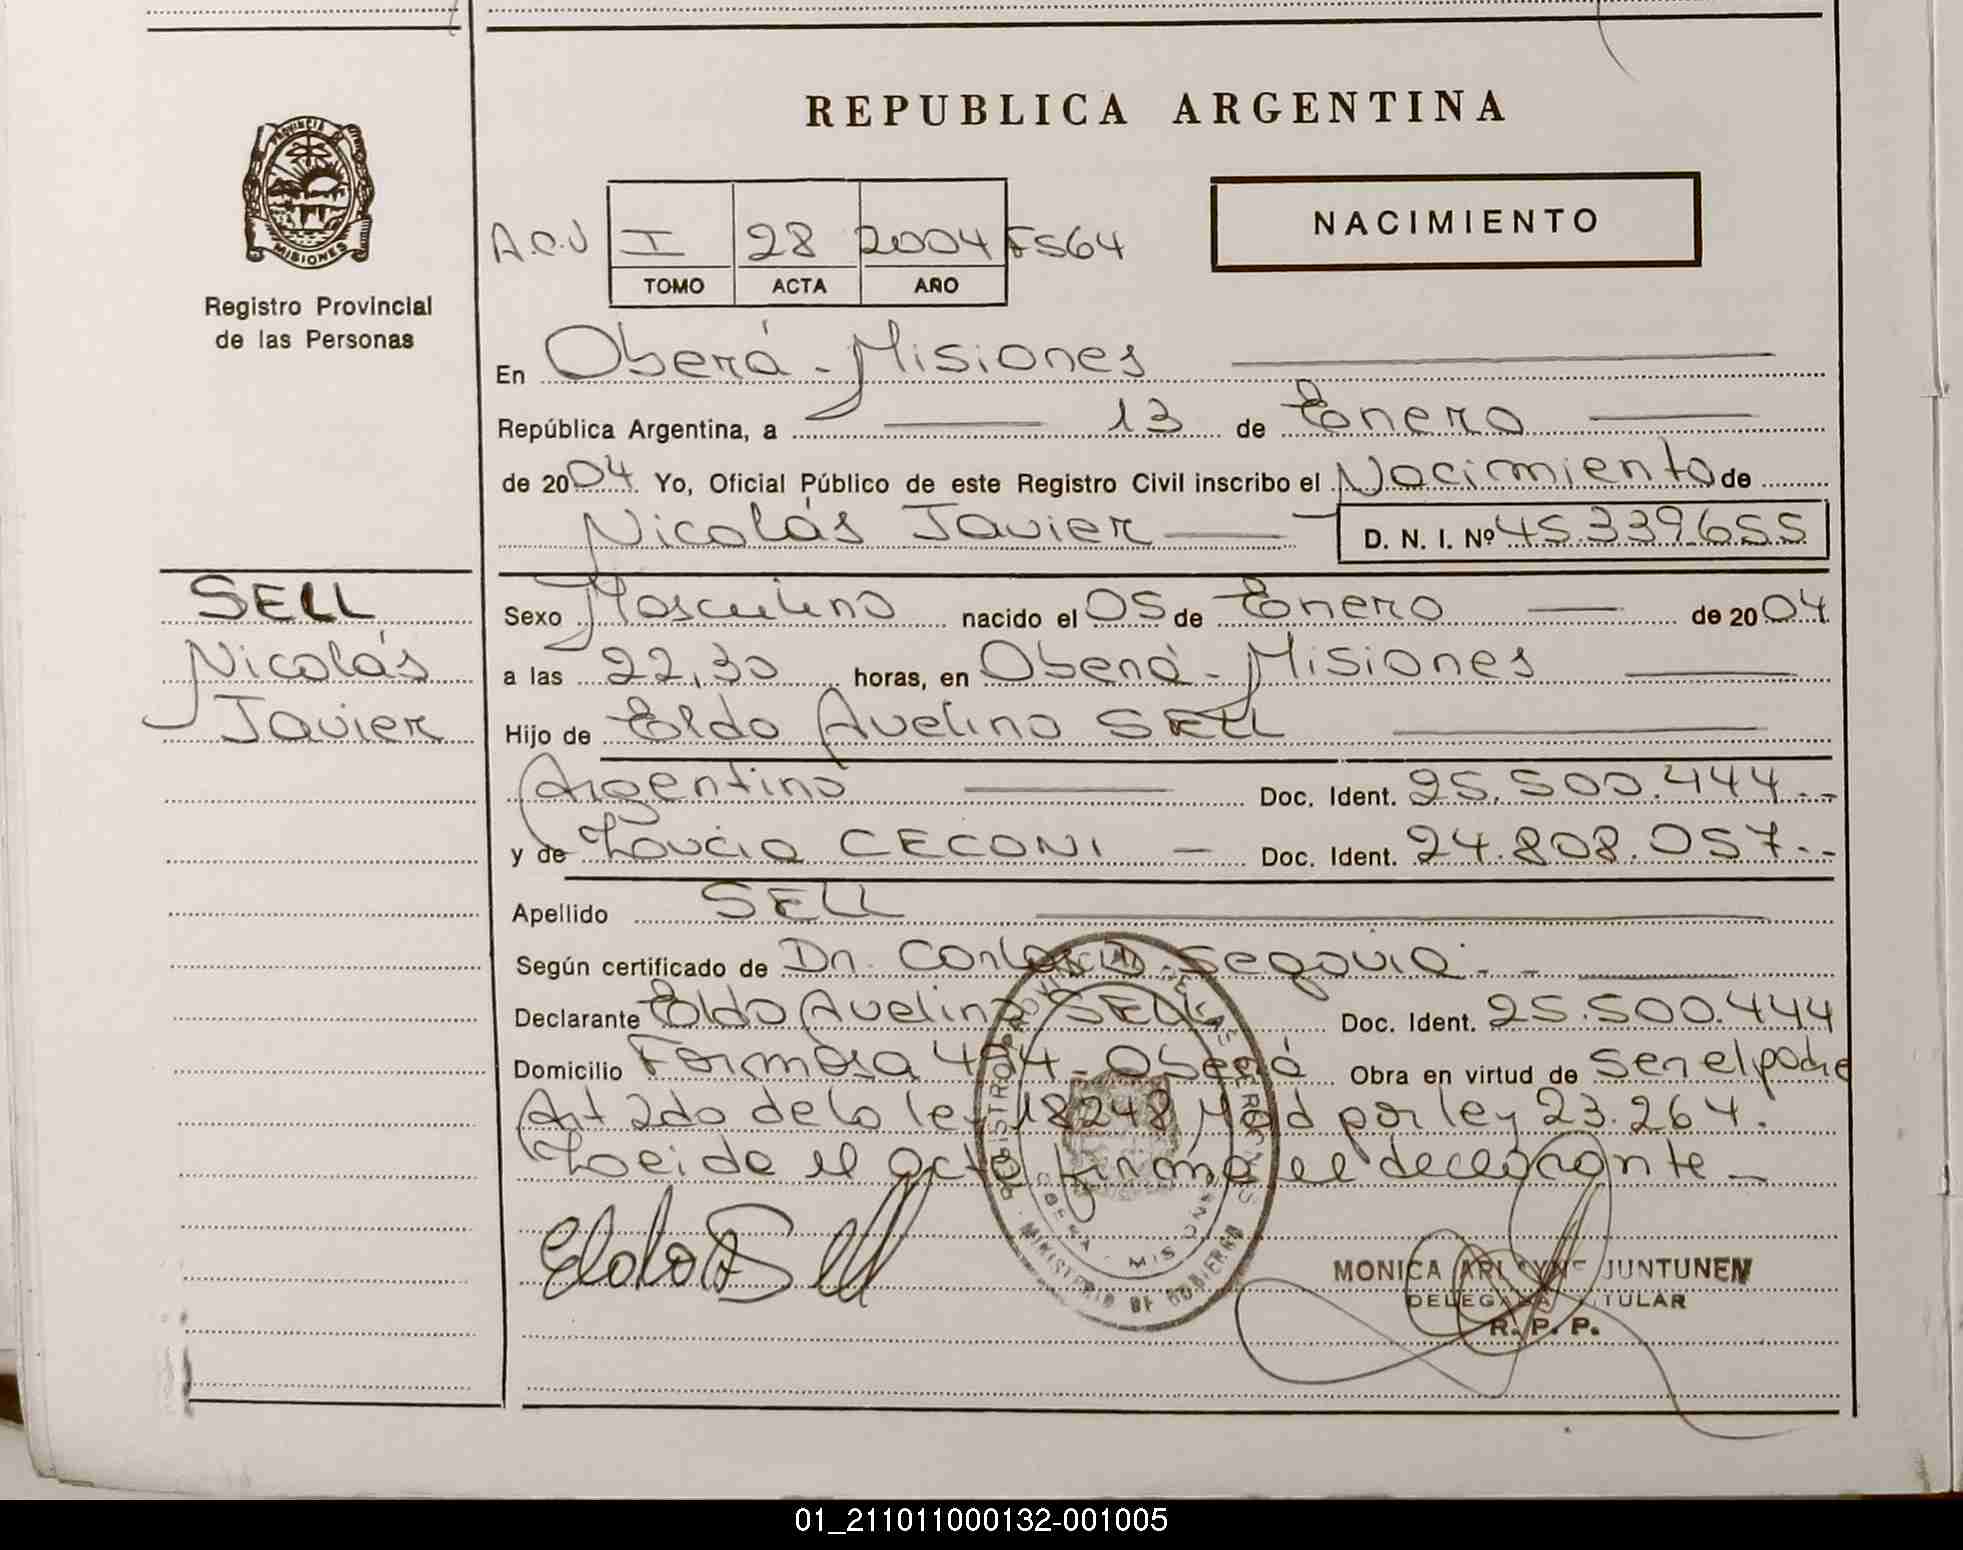 REPUBLICA ARGENTINA
PROVINCIA
MISIONES
Registro Provincial
de las Personas
NACIMIENTO
A.C.U I 28 2004 FS64
TOMO ACTA AÑO
En Oberá - Misiones
República Argentina, a 13 de Enero
de 2004 Yo, Oficial Público de este Registro Civil inscribo el Nacimiento de
Nicolás Javier D. N. I. Nº 45.339.655
SELL
Nicolás
Javier
Sexo Masculino nacido el 05 de Enero de 2004
a las 22,30 horas, en Oberá - Misiones
Hijo de Eldo Avelino SELL
Argentino Doc. Ident. 25.500.444
y de Laucia CECONI Doc. Ident. 24.808.057
Apellido SELL
Según certificado de Dn. Carlos D. Segovia
Declarante Eldo Avelino SELL Doc. Ident. 25.500.444
Domicilio Formosa 494 - Oberá Obra en virtud de ser el padre
Art 2do de la ley 18248 Mod por ley 23.264.
Leida el acta firma el declarante
REGISTRO PROVINCIAL DE LAS PERSONAS
OBERA - MISIONES
MINISTERIO DE GOBIERNO
MONICA JUNTUNEN
DELEGADA TITULAR
R. P. P.
01_211011000132-001005